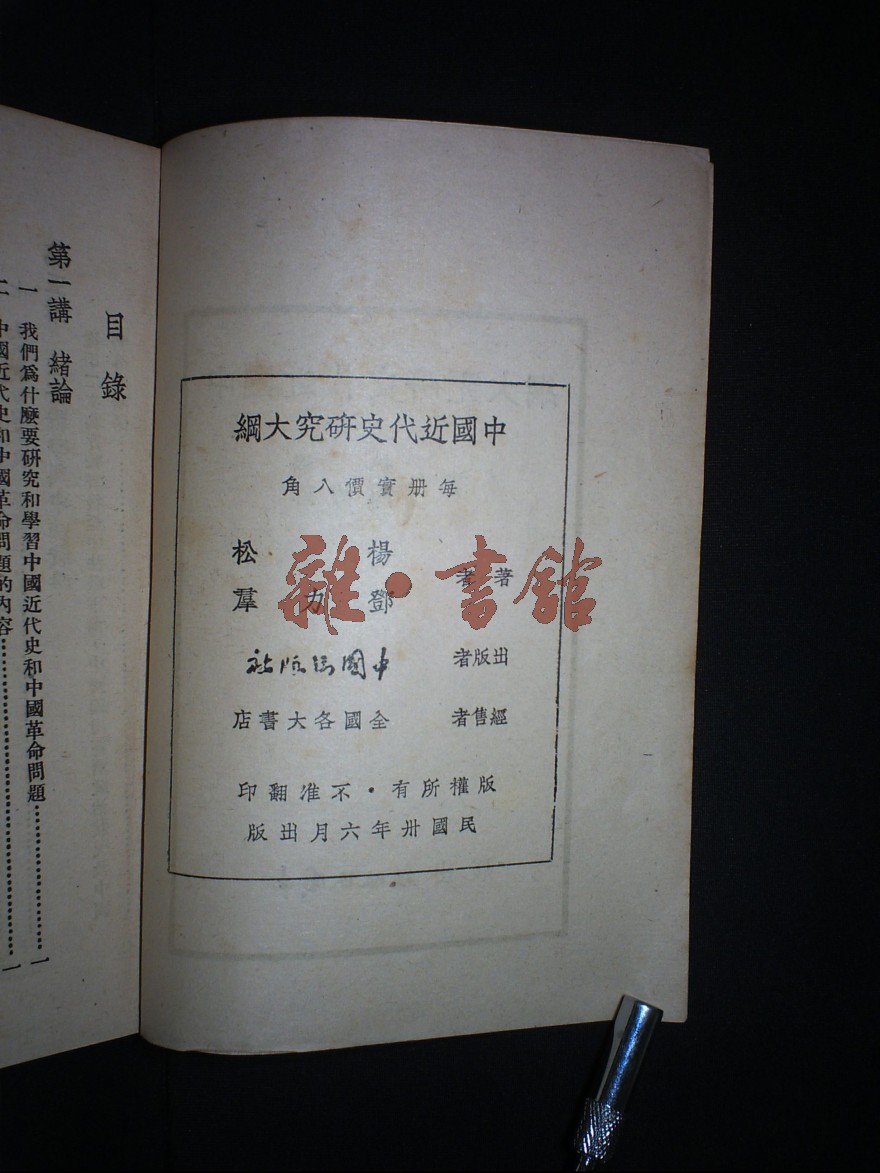 中國近代史研究大綱
每册實價八角
著者 楊松
鄧力羣
出版者 中國出版社
經售者 全國各大書店
版權所有·不准翻印
民國卅年六月出版
雜·書館
目錄
第一講 緒論
一 我們爲什麼要研究和學習中國近代史和中國革命問題……一
二 中國近代史和中國革命問題的內容……一